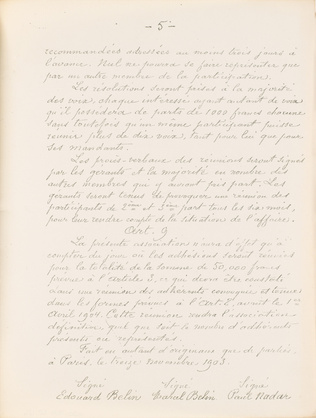 - 5 -
recommandées adressées au moins trois jours à
l'avance. Nul ne pourra se faire représenter que
par un autre membre de la participation.
Les résolutions seront prises à la majorité
des voix, chaque intéressé ayant autant de voix
qu'il possèdera de parts de 1000 francs chacune
sans toutefois qu'un même participant puisse
réunir plus de dix voix, tant pour lui que pour
ses mandants.
Les procès verbaux des réunions seront signés
par les gérants et la majorité en nombre des
autres membres qui y auront pris part. Les
gérants seront tenus de provoquer une réunion des
participants de 2ème et 3ème part tous les six mois,
pour leur rendre compte de la situation de l'affaire.
Art. 9
La présente association n'aura d'effet qu'à
compter du jour où les adhésions seront réunies
pour la totalité de la somme de 50,000 francs
prévue à l'article 3, ce qui devra être constaté
dans une réunion des adhérents convoqués et tenue
dans les formes prévues à l'art. 8, avant le 1er
Avril 1904. Cette réunion rendra l'association
définitive quel que soit le nombre d'adhérents
présents ou représentés.
Fait en autant d'originaux que de parties,
à Paris, le treize Novembre 1903.
Signé Signé Signé
Edouard Belin Marcel Belin Paul Nadar